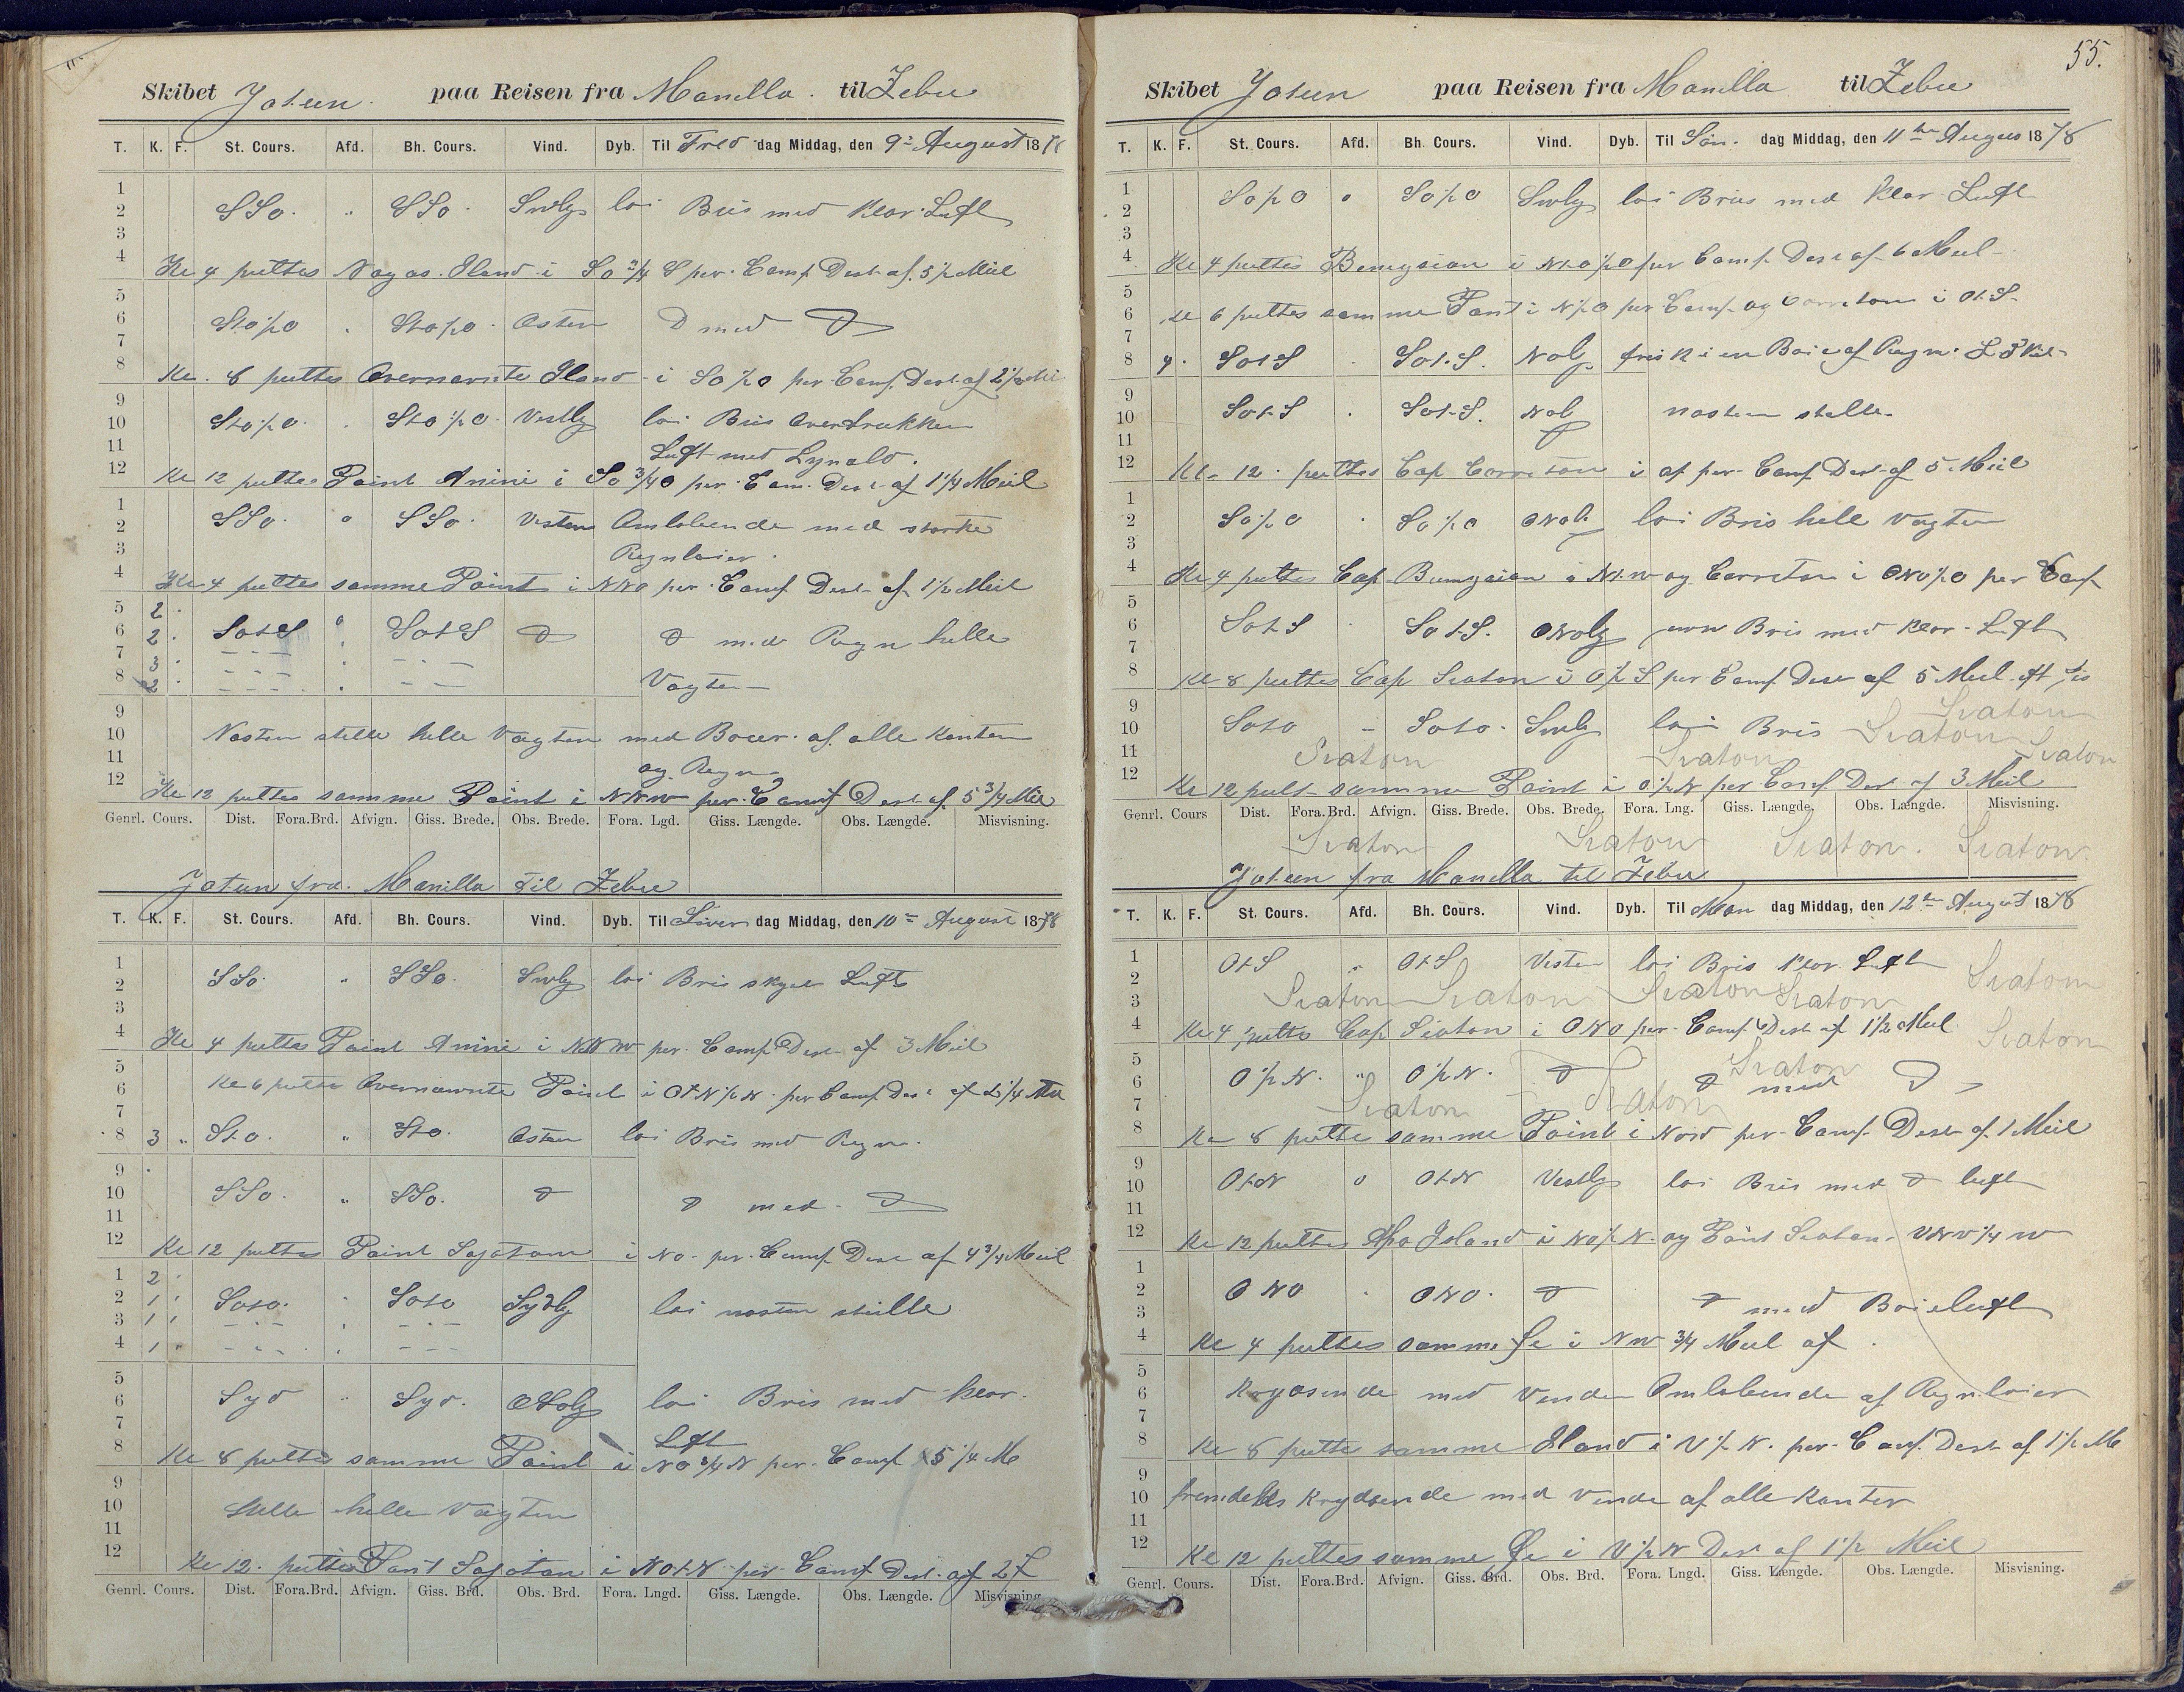 Skibet Jotun paa Reisen fra Manilla til Zebu
T. K. F. St. Cours. Afd. Bh. Cours. Vind. Dyb. Til Freddag Middag, den 9de August 1878
1
2 SSo. " SSo. Swlg loi Bris med klar Luft
3
4 Kl 4 peiltes Nogas Iland i So 3/4 S per. Comp. Dest. af. 5 1/2 Miil
5
6 Sto 1/2 o " Sto 1/2 o Osten D med D
7
8 Kl. 8 peiltes Overnævnte Iland i So 1/2 o per Comp. Dest af 2 1/2 Mi
9
10 Sto 1/2 o . Sto 1/2 o Vestlg loi Bris Overtrukken
11 Luft med Lynald.
12 Kl 12 peiltes Point Anini i So 3/4 o per Com. Dest af 1 1/4 Miil
1
2 SSo. " SSo. Vesten Omlobende med storke
3 Regnboier.
4 Kl 4 peiltes samme Point i NNO per. Comp Dest. af 1 1/2 Miil
5 2
6 2 SotS " SotS D D med Regn helle
7 3
8 2 Vagten
9
10 Nasten stille helle Vagten med Boier af alle Kanter
11 og Regn
12 Kl 12 peiltes samme Point i NNW per. Comp Dest. af 5 3/4 Mil
Genrl. Cours. Dist. Fora.Brd. Afvign. Giss. Brede. Obs. Brede. Fora. Lgd. Giss. Længde. Obs. Længde. Misvisning.
Jotun fra Manilla til Zebu
T. K. F. St. Cours. Afd. Bh. Cours. Vind. Dyb. Til Löver dag Middag, den 10de August 1878
1
2 SSo. " SSo. Swlg loi Bris skyet Luft
3
4 Kl 4 peiltes Point Anini i NNW per. Comp Dest af 3 Miil
5
6 Kl 6 peiltes Overnævnte Point i OtN 1/2 N per Comp Dest af
7
8 3 " Sto. " Sto. Osten loi Bris med Regn.
9
10 SSo. " SSo. D D med D
11
12 Kl 12 peiltes Point Sojoton i No per. Comp Dest af 4 3/4 Miil
1 2
2 1 Soto. " Soto Sydlg loi nasten stille
3 1
4 1
5
6 Syd " Syd. OSolg loi Bris med klar
7 Luft
8 Kl 8 peiltes samme Point i No 3/4 N per. Comp 5 1/4 M
9
10 Stille helle Vagten
11
12 Kl 12. peiltes Pant Sojoton i NotN per Comp Dest. af 2
Genrl. Cours. Dist. Fora.Brd. Afvign. Giss. Brd. Obs. Brd. Fora. Lngd. Giss. Længde. Obs. Længde. Misvisning.
55.
Skibet Jotun paa Reisen fra Manilla til Zebu
T. K. F. St. Cours. Afd. Bh. Cours. Vind. Dyb. Til Sön. dag Middag, den 11te Augus 1878
1
2 So 1/2 O " So 1/2 O Swlg loi Bris med klar Luft
3
4 Kl 4 peiltes Bemysian i NtO 1/2 O per Comp. Dest af 6 Miil
5
6 Kl 6 peiltes samme Pant i N 1/2 O per Comp. og Correton i OtS
7
8 4. SotS . SotS. Nolg frisk i en Boie af Regn.
9
10 SotS . SotS. Nolg nasten stille.
11
12 Kl. 12. peiltes Cap Correton i per Comp Dest af 5 Miil
1
2 So 1/2 O . So 1/2 O ONolg loi Bris helle Vagten
3
4 Kl 4 peiltes Cap Bumysian i NtW og Correton i ONO 1/2 O per Comp
5
6 SotS . SotS. ONolg Bris med klar Luft
7
8 Kl 8 peiltes Cap Siaton i O 1/2 S per Comp. Dest af 5 Miil
9 Siaton
10 Soto " Soto. Swlg loi Bris Siaton
11 Siaton Siaton Siaton
12 Kl 12 peilt samme Point i O 1/2 N per Comp Dest af 3 Miil
Genrl. Cours Dist. Fora.Brd. Afvign. Giss. Brede. Obs. Brede. Fora. Lng. Giss. Længde. Obs. Længde. Misvisning.
Siaton Siaton Siaton. Siaton.
Jotun fra Manilla til Zebu
T. K. F. St. Cours. Afd. Bh. Cours. Vind. Dyb. Til Man dag Middag, den 12te August 1878
1
2 OtS " OtS Vesten loi Bris klar Luft Siaton
3 Siaton Siaton Siaton Siaton
4 Kl 4 peiltes Cap Siaton i ONO per. Comp Dest af 1 1/2 Miil Siaton
5 Siaton
6 O 1/2 N. " O 1/2 N. D D med D
7 Siaton Siaton
8 Kl 8 peilte samme Point i Nord per. Comp. Dest af 1 Miil
9
10 OtN " OtN Vestlg loi Bris med D luft
11
12 Kl 12 peiltes Apo Island i No 1/2 N. og Point Siaton VNV 1/4 W
1
2 ONO . ONO. D D med Boieluft
3
4 Kl 4 peiltes samme Øe i NW 3/4 Miil af
5
6 Krydsende med Vinden Omlobende af Regnboier
7
8 Kl 8 peilte samme Iland i V 1/2 N. per. Comp. Dest af 1 1/2 M
9
10 fremdeles Krydsende med Vinde af alle Kanter
11
12 Kl 12 peiltes samme Øe i V 1/2 N Dest af 1 1/2 Miil
Genrl. Cours. Dist. Fora.Brd. Afvign. Giss. Brd. Obs. Brd. Fora. Lngd. Giss. Længde. Obs. Længde. Misvisning.